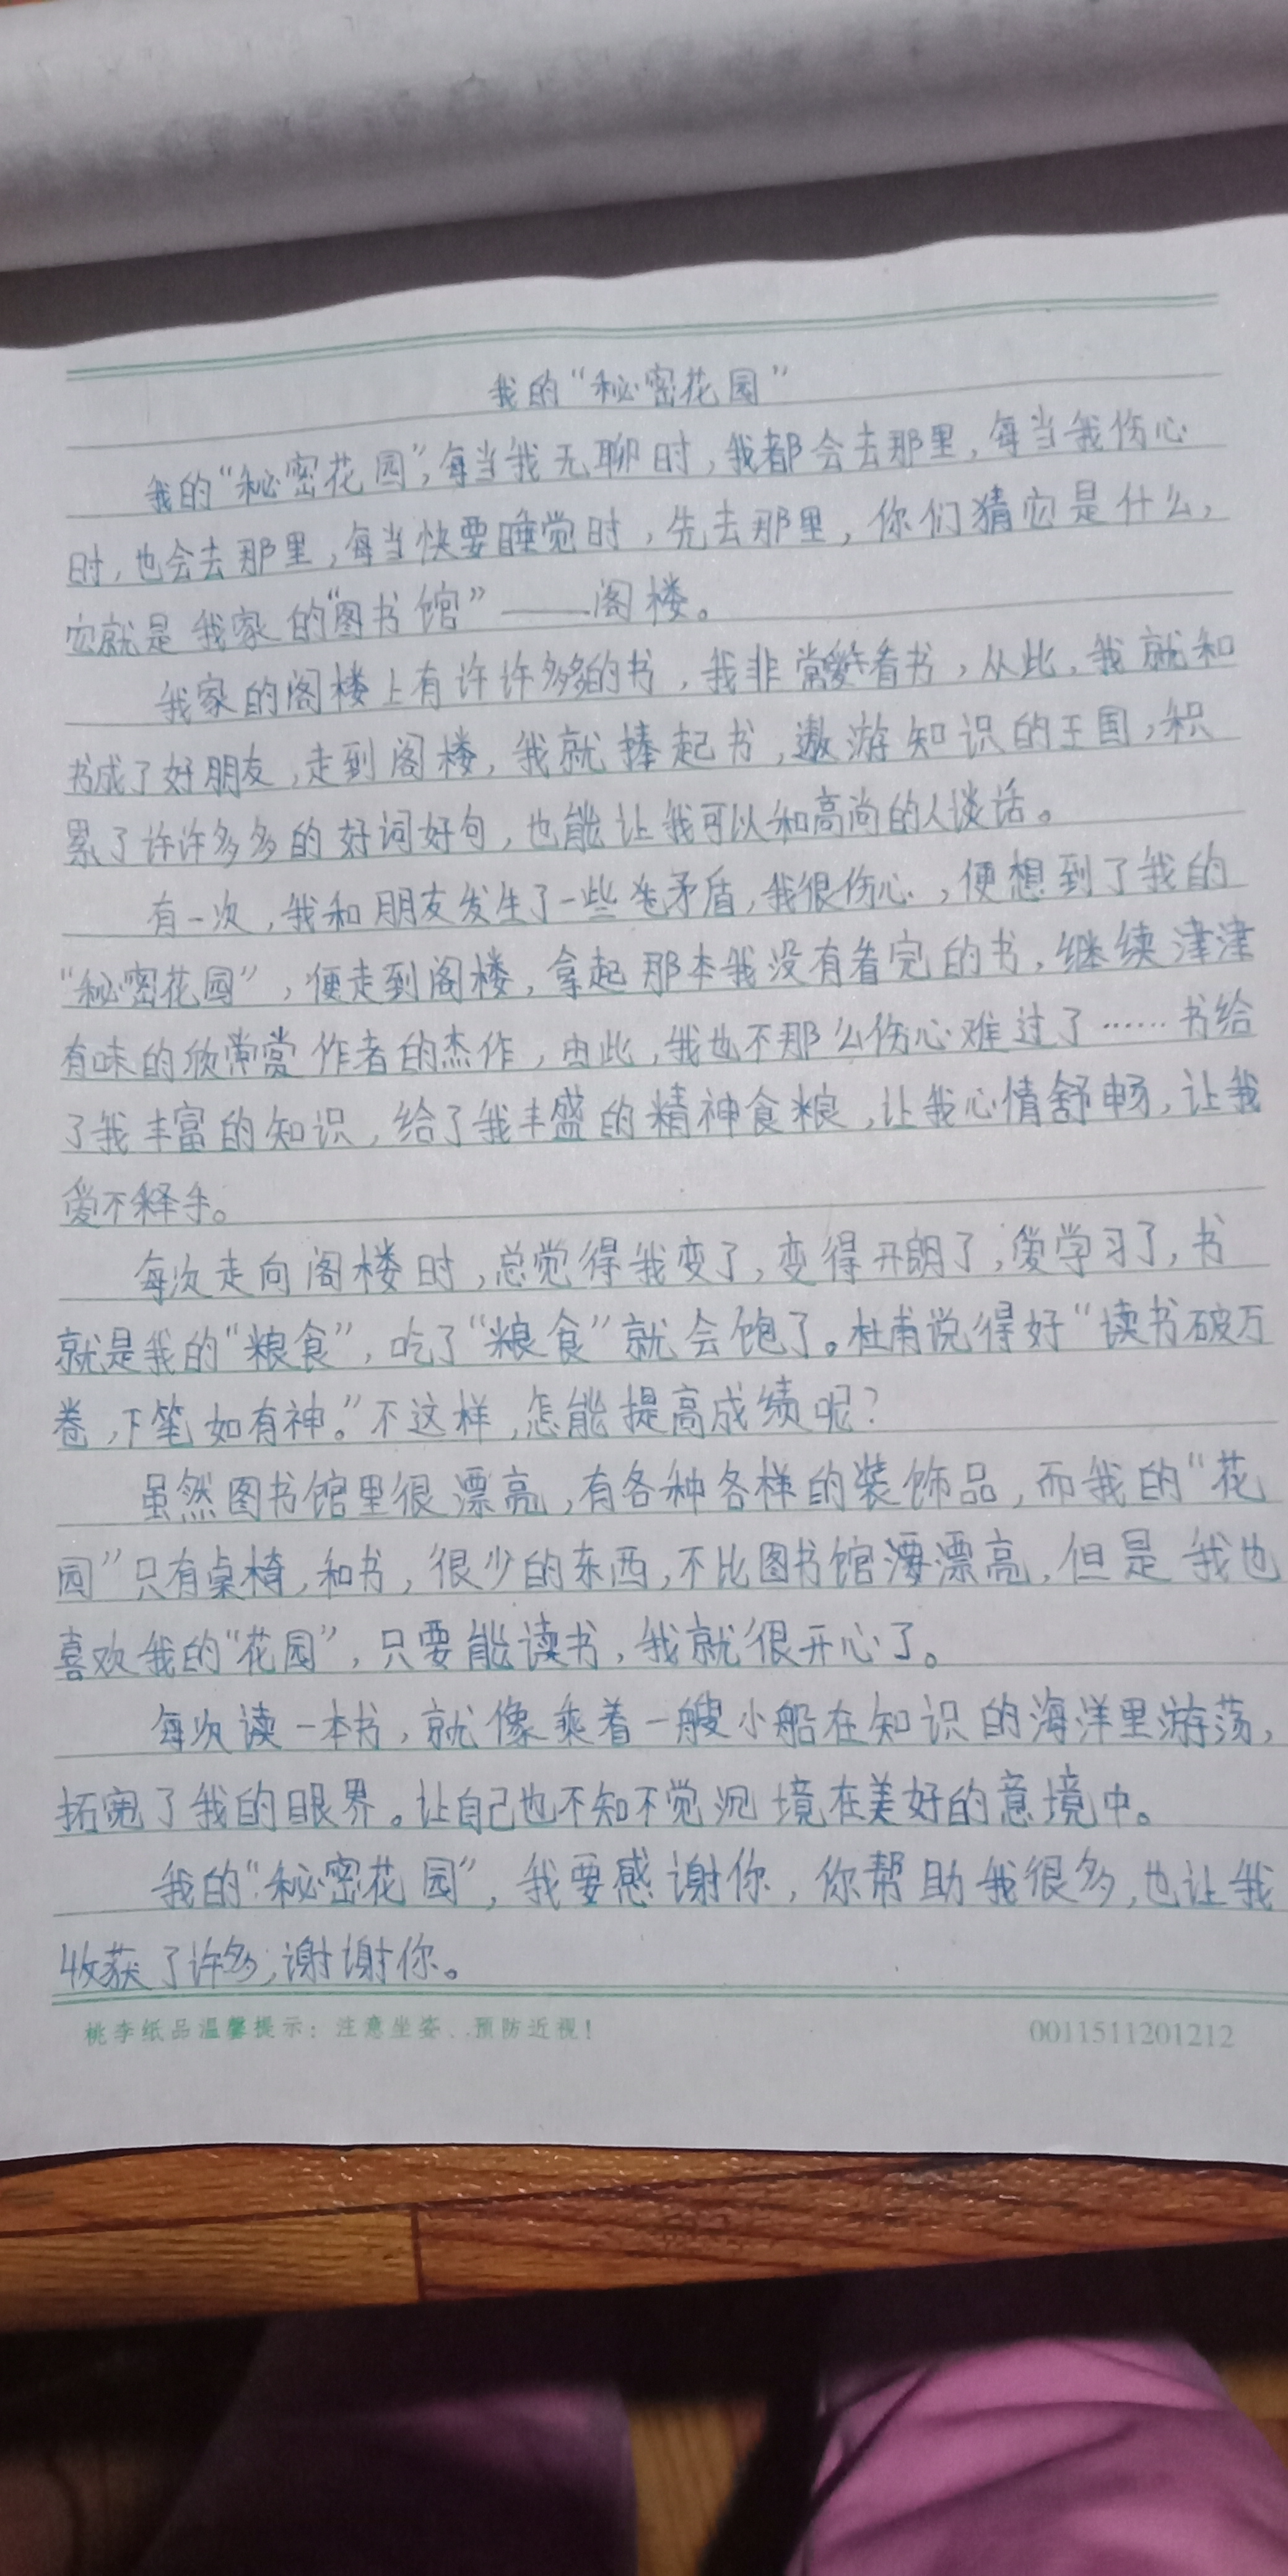 我的“秘密花园”
我的“秘密花园”,每当我无聊时,我都会去那里,每当我伤心
时,也会去那里,每当快要睡觉时,先去那里,你们猜它是什么,
它就是我家的“图书馆”——阁楼。
我家的阁楼上有许许多多的书,我非常看书,从此,我就和
书成了好朋友,走到阁楼,我就捧起书,遨游知识的王国,积
累了许许多多的好词好句,也能让我可以和高尚的人谈话。
有一次,我和朋友发生了一些矛盾,我很伤心,便想到了我的
“秘密花园”,便走到阁楼,拿起那本我没有看完的书,继续津津
有味的欣赏作者的杰作,由此,我也不那么伤心难过了……书给
了我丰富的知识,给了我丰盛的精神食粮,让我心情舒畅,让我
爱不释手。
每次走向阁楼时,总觉得我变了,变得开朗了,爱学习了,书
就是我的“粮食”,吃了“粮食”就会饱了。杜甫说得好“读书破万
卷,下笔如有神。”不这样,怎能提高成绩呢?
虽然图书馆里很漂亮,有各种各样的装饰品,而我的“花
园”只有桌椅,和书,很少的东西,不比图书馆漂亮,但是我也
喜欢我的“花园”,只要能读书,我就很开心了。
每次读一本书,就像乘着一艘小船在知识的海洋里游荡,
拓宽了我的眼界。让自己也不知不觉沉境在美好的意境中。
我的“秘密花园”,我要感谢你,你帮助我很多,也让我
收获了许多,谢谢你。
桃李纸品温馨提示:注意坐姿..预防近视!
0011511201212